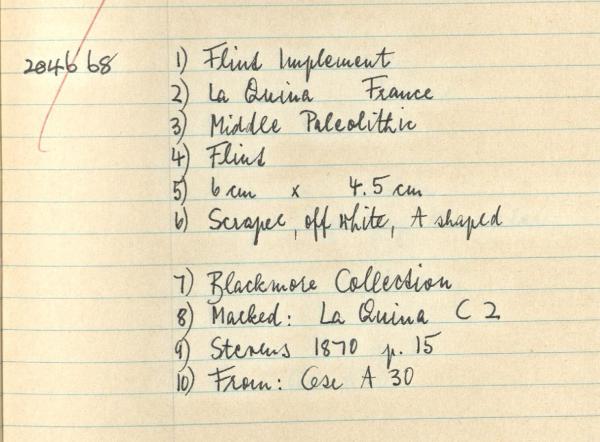 204668 1) Flint Implement
2) La Quina France
3) Middle Paleolithic
4) Flint
5) 6 cm x 4.5 cm
6) Scraper, off white, A shaped
7) Blackmore Collection
8) Marked: La Quina C 2
9) Stevens 1870 p. 15
10) From: Case A 30